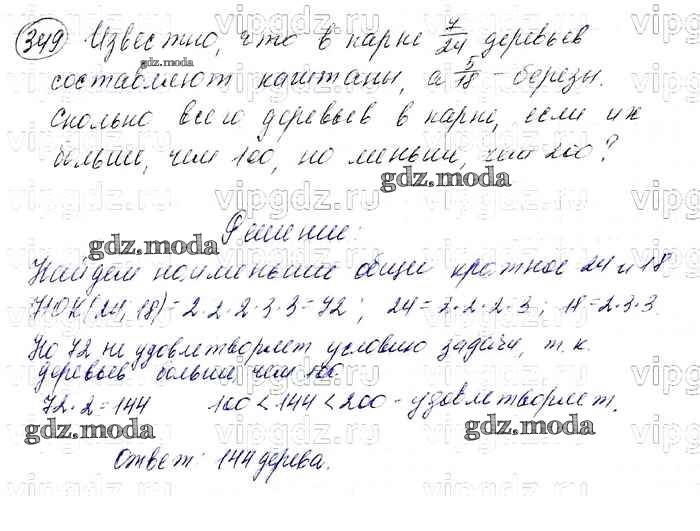 349 Известно, что в парке 7/24 деревьев
составляют каштаны, а 5/18 - березы.
Сколько всего деревьев в парке, если их
больше, чем 100, но меньше, чем 200?
Решение:
Найдем наименьшее общее кратное 24 и 18
НОК(24; 18)=2·2·2·3·3=72; 24=2·2·2·3; 18=2·3·3.
Но 72 не удовлетворяет условию задачи, т.к.
деревьев больше чем 100.
72·2=144 100<144<200 - удовлетворяет.
Ответ: 144 дерева.
gdz.moda
gdz.moda
gdz.moda
gdz.moda
gdz.moda
vipgdz.ru